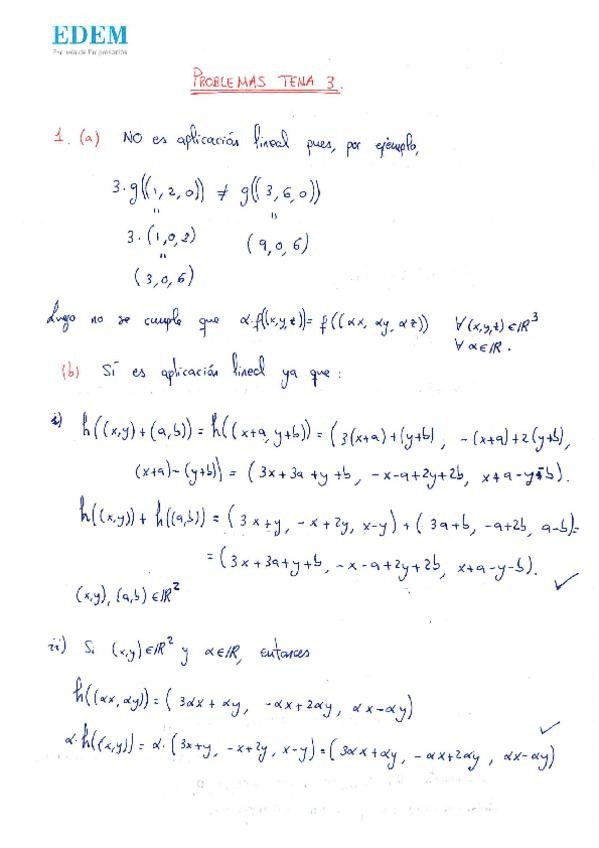 EDEM
Escuela de Empresarios
PROBLEMAS TEMA 3.
1. (a) NO es aplicación lineal pues, por ejemplo,
3·g((1,2,0)) ≠ g((3,6,0))
" "
3·(1,0,2) (9,0,6)
"
(3,0,6)
Luego no se cumple que α·f((x,y,z)) = f((αx, αy, αz)) ∀(x,y,z)∈ℝ³
∀α∈ℝ.
(b) Sí es aplicación lineal ya que:
i) h((x,y)+(a,b)) = h((x+a, y+b)) = (3(x+a)+(y+b), -(x+a)+2(y+b),
(x+a)-(y+b)) = (3x+3a+y+b, -x-a+2y+2b, x+a-y-b).
h((x,y))+h((a,b)) = (3x+y, -x+2y, x-y)+(3a+b, -a+2b, a-b)=
=(3x+3a+y+b, -x-a+2y+2b, x+a-y-b). ✓
(x,y), (a,b)∈ℝ²
ii) Si (x,y)∈ℝ² y α∈ℝ, entonces
h((αx, αy)) = (3αx+αy, -αx+2αy, αx-αy)
α·h((x,y)) = α·(3x+y, -x+2y, x-y) = (3αx+αy, -αx+2αy, αx-αy) ✓